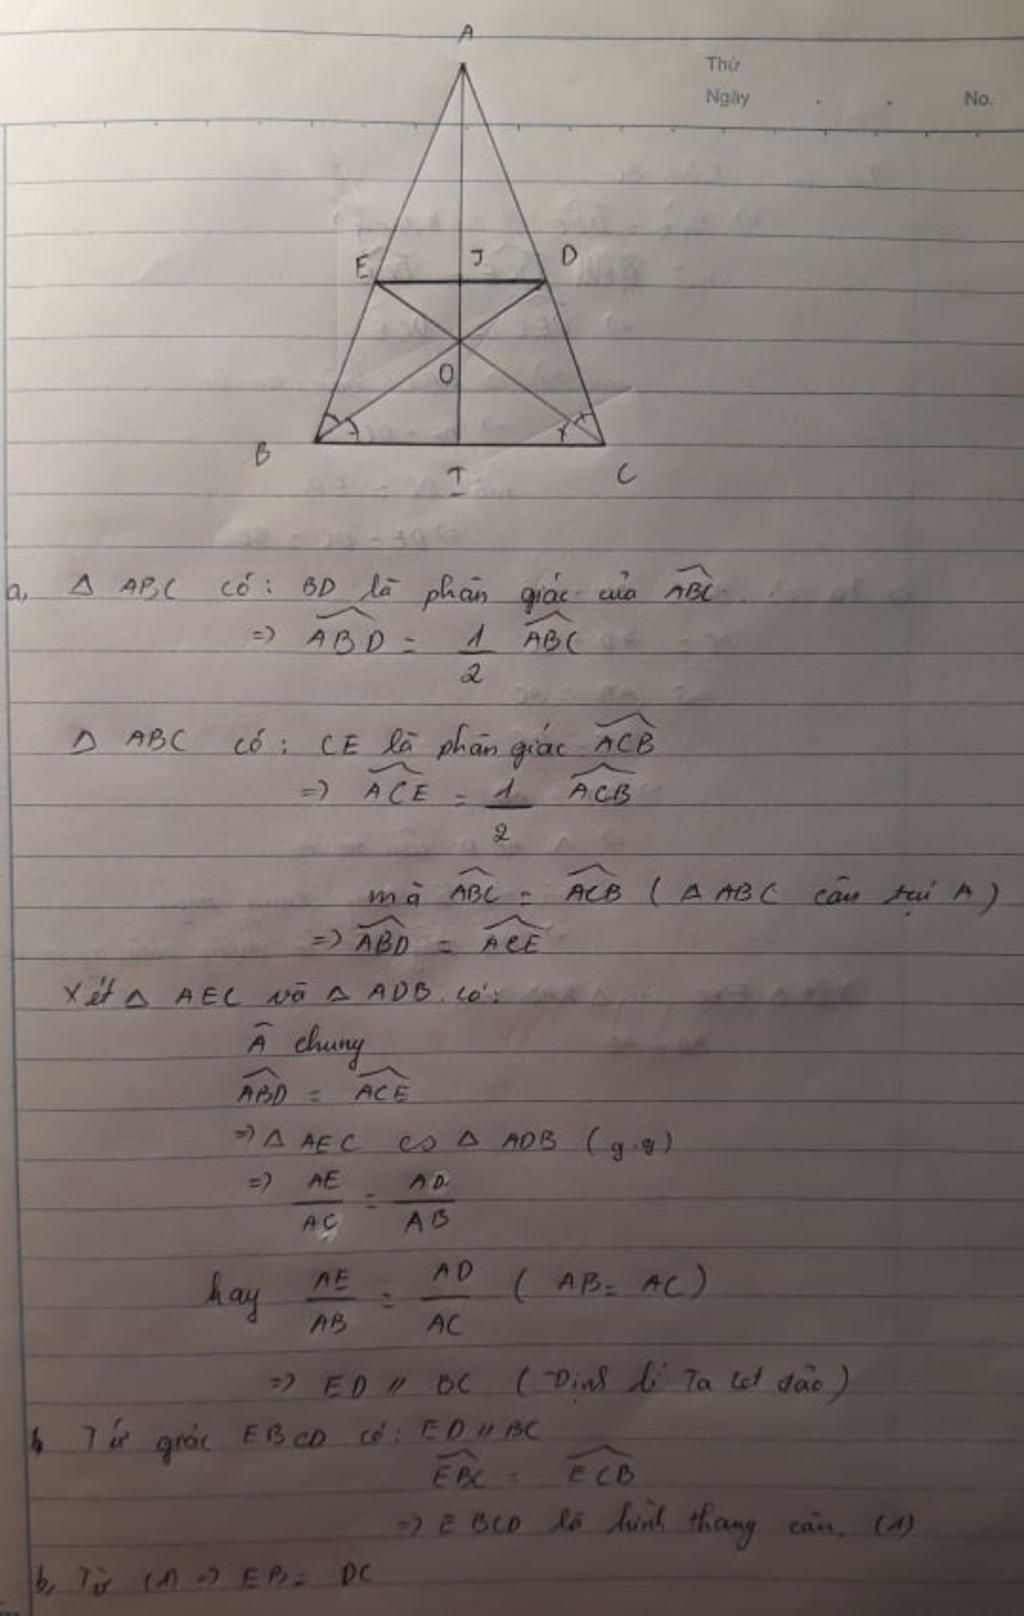 Thứ
Ngày . . No.
A
E J D
O
B I C
a, Δ ABC có: BD là phân giác của ABC
=> ABD = 1/2 ABC
Δ ABC có: CE là phân giác ACB
=> ACE = 1/2 ACB
mà ABC = ACB (Δ ABC cân tại A)
=> ABD = ACE
Xét Δ AEC và Δ ADB có:
A chung
ABD = ACE
=> Δ AEC ∽ Δ ADB (g.g)
=> AE/AC = AD/AB
hay AE/AB = AD/AC (AB = AC)
=> ED // BC (Định lí Ta lét đảo)
Tứ giác EBCD có: ED // BC
EBC = ECB
=> EBCD là hình thang cân. (1)
b, Từ (1) => EB = DC